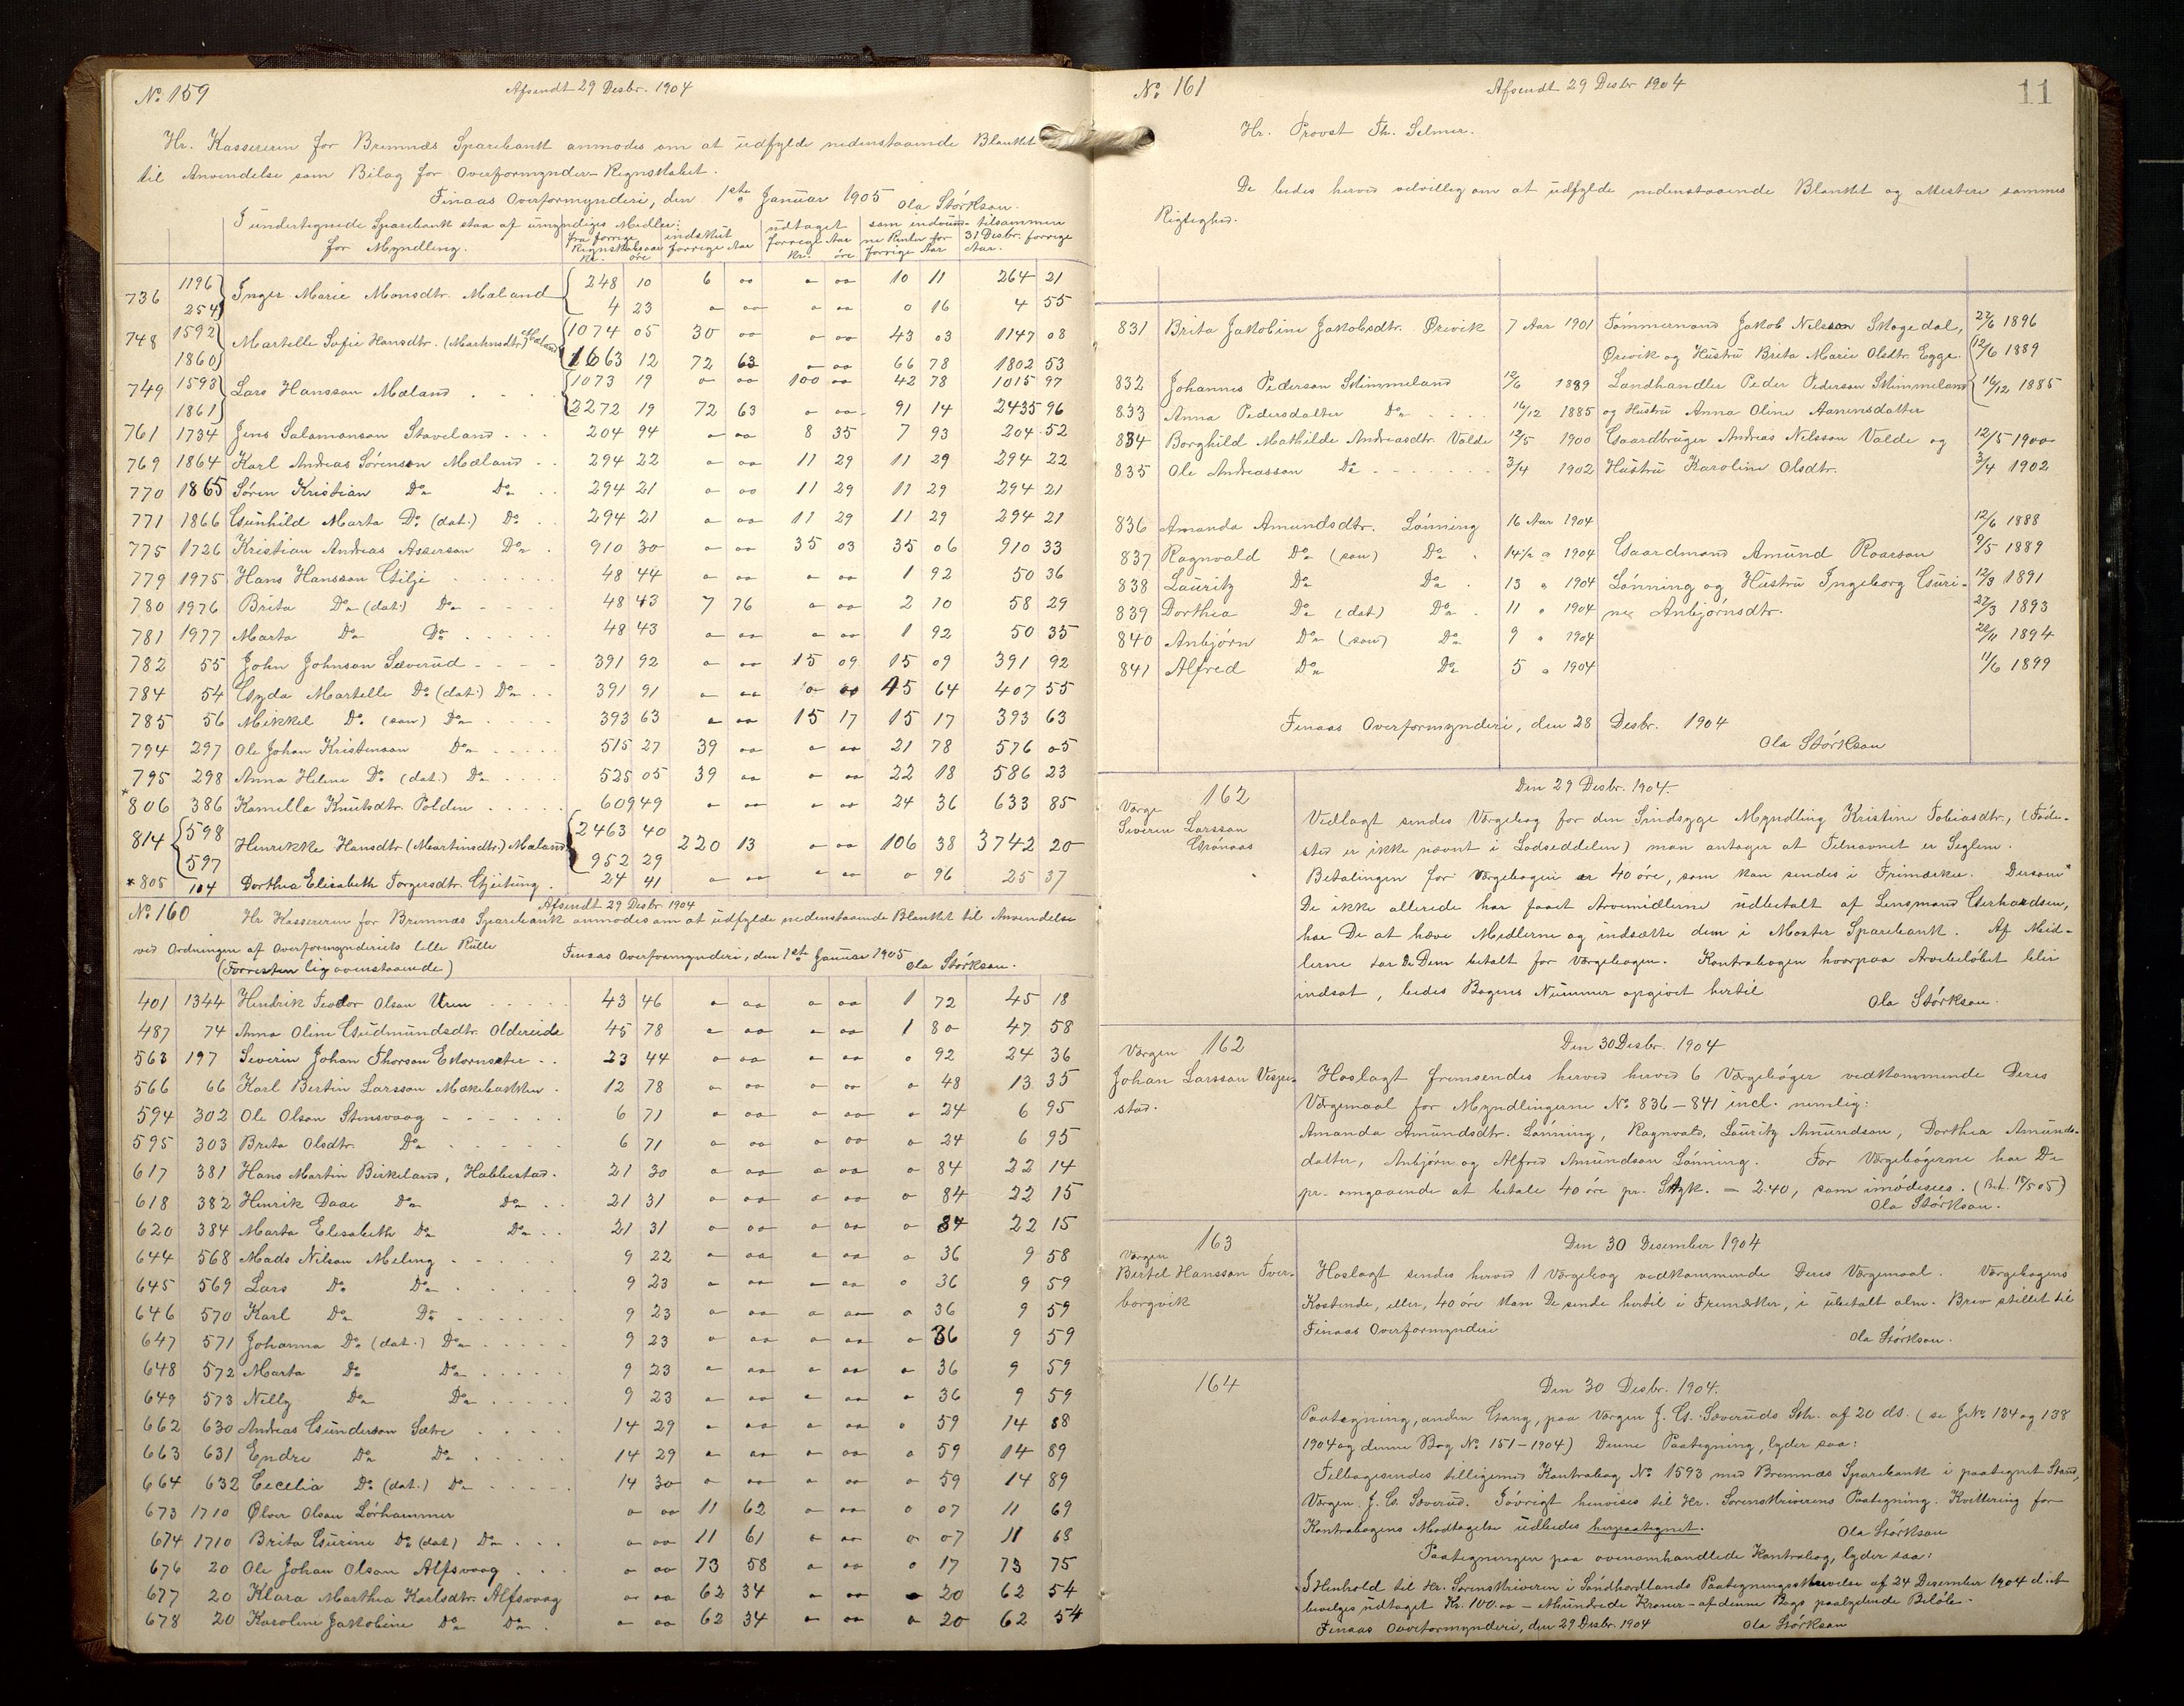 No. 159 Afsendt 29 Desbr. 1904
Hr. Kassereren for Bremnæs Sparebank anmodes om at udfylde nedenstaaende Blanket
til Anvendelse som Bilag for Overformynder-Regnskabet.
Finaas Overformynderi, den 1ste Januar 1905 Ola Størkson.
I undertegnede Sparebank staa af umyndiges Midler:
for Myndling. fra forrige Regnskabsaar Kr. øre indskut forrige Aar udtaget forrige Aar Kr. øre som indvundne Renter for forrige Aar tilsammen 31 Desbr. forrige Aar.
736 1196 Inger Marie Monsdtr. Mæland 248 10 6 00 0 00 10 11 264 21
254 4 23 0 00 0 00 0 16 4 55
748 1592 Martelle Sofie Hansdtr. (Martinsdtr) Mæland 1074 05 30 00 0 00 43 03 1147 08
1860 1663 12 72 63 0 00 66 78 1802 53
749 1593 Lars Hansson Mæland 1073 19 0 00 100 00 42 78 1015 97
1861 2272 19 72 63 0 00 91 14 2435 96
761 1734 Jens Salamonson Staveland 204 94 0 00 8 35 7 93 204 52
769 1864 Karl Andreas Sørenson Mæland 294 22 0 00 11 29 11 29 294 22
770 1865 Søren Kristian Do Do 294 21 0 00 11 29 11 29 294 21
771 1866 Gunhild Marta Do (dat.) Do 294 21 0 00 11 29 11 29 294 21
775 1726 Kristian Andreas Asserson Do 910 30 0 00 35 03 35 06 910 33
779 1975 Hans Hansson Gilje 48 44 0 00 0 00 1 92 50 36
780 1976 Brita Do (dat.) Do 48 43 7 76 0 00 2 10 58 29
781 1977 Marta Do Do 48 43 0 00 0 00 1 92 50 35
782 55 John Johnson Sæverud 391 92 0 00 15 09 15 09 391 92
784 54 Gyda Martelle Do (dat.) Do 391 91 0 00 0 00 15 64 407 55
785 56 Mikkel Do (søn) Do 393 63 0 00 15 17 15 17 393 63
794 297 Ole Johan Kristenson Do 515 27 39 00 0 00 21 78 576 05
795 298 Anna Helene Do (dat.) Do 525 05 39 00 0 00 22 18 586 23
*806 386 Kamella Knutsdtr. Polden 609 49 0 00 0 00 24 36 633 85
814 598 Henrikke Hansdtr (Martinsdtr.) Mæland 2463 40 220 13 0 00 106 38 3742 20
597 952 29
*805 104 Dorthea Elisabeth Torgersdtr. Gjeitung 24 41 0 00 0 00 0 96 25 37
No. 160 Afsendt 29 Desbr. 1904
Hr Kassereren for Bremnæs Sparebank anmodes om at udfylde nedenstaaende Blanket til Anvendelse
ved Ordningen af Overformynderiets lille Rulle
(Forresten lig ovenstaaende) Finaas Overformynderi, den 1ste Januar 1905 Ola Størkson.
401 1344 Hendrik Teodor Olson Uren 43 46 0 00 0 00 1 72 45 18
487 74 Anna Oline Gudmundsdtr. Oldereide 45 78 0 00 0 00 1 80 47 58
563 197 Severin Johan Thorson Estornseter 23 44 0 00 0 00 0 92 24 36
566 66 Karl Bertin Larsson Mækebakken 12 78 0 00 0 00 0 48 13 35
594 302 Ole Olson Stensvaag 6 71 0 00 0 00 0 24 6 95
595 303 Brita Olsdtr. Do 6 71 0 00 0 00 0 24 6 95
617 381 Hans Martin Birkeland, Habbestad 21 30 0 00 0 00 0 84 22 14
618 382 Henrik Daae Do Do 21 31 0 00 0 00 0 84 22 15
620 384 Marta Elesabeth Do Do 21 31 0 00 0 00 0 84 22 15
644 568 Mads Nilson Meling 9 22 0 00 0 00 0 36 9 58
645 569 Lars Do Do 9 23 0 00 0 00 0 36 9 59
646 570 Karl Do Do 9 23 0 00 0 00 0 36 9 59
647 571 Johanna Do (dat.) Do 9 23 0 00 0 00 0 36 9 59
648 572 Marta Do Do 9 23 0 00 0 00 0 36 9 59
649 573 Nelly Do Do 9 23 0 00 0 00 0 36 9 59
662 630 Andreas Gunderson Sætre 14 29 0 00 0 00 0 59 14 88
663 631 Endre Do Do 14 29 0 00 0 00 0 59 14 89
664 632 Cecelia Do (dat.) Do 14 30 0 00 0 00 0 59 14 89
673 1710 Ølver Olson Lørhammer 0 00 11 62 0 00 0 07 11 69
674 1710 Brita Gurine Do (dat) Do 0 00 11 61 0 00 0 07 11 68
676 20 Ole Johan Olson Alfsvaag 0 00 73 58 0 00 0 17 73 75
677 20 Klara Marthea Karlsdtr. Alfsvaag 0 00 62 34 0 00 0 20 62 54
678 20 Karoline Jakobine Do Do 0 00 62 34 0 00 0 20 62 54
No. 161 Afsendt 29 Desbr 1904 11
Hr. Provst Th. Selmer.
De bedes herved velvillig om at udfylde nedenstaaende Blanket og attestere sammes
Rigtighed.
831 Brita Jakobine Jakobsdtr. Ørevik 7 Aar 1901 Tømmermand Jakob Nelsson Skogedal, 27/6 1896
Ørevik og Hustru Brita Marie Olsdtr. Egge. 12/6 1889
832 Johannes Pederson Skimmeland 12/6 1889 Landhandler Peder Pederson Skimmeland 16/12 1885
833 Anna Pedersdatter Do 16/12 1885 og Hustru Anna Oline Aanensdatter
834 Borghild Mathilde Andreasdtr. Valde 12/5 1900 Gaardbruger Andreas Nelsson Valde og 12/5 1900
835 Ole Andreasson Do 3/4 1902 Hustru Karoline Olsdtr. 3/4 1902
836 Amanda Amundsdtr. Lønning 16 Aar 1904 12/6 1888
837 Ragnvald Do (søn) Do 14 1/2 " 1904 Gaardmand Amund Roarson 9/5 1889
838 Lauritz Do Do 13 " 1904 Lønning og Hustru Ingeborg Guri- 12/3 1891
839 Dorthea Do (dat) Do 11 " 1904 ne Anbjørnsdtr. 22/3 1893
840 Anbjørn Do (søn) Do 9 " 1904 28/11 1894
841 Alfred Do Do 5 " 1904 11/6 1899
Finaas Overformynderi, den 28 Desbr. 1904
Ola Størkson
162
Værge
Severin Larsson
Grønaas
Den 29 Desbr. 1904.
Vedlagt sendes Værgebog for den Sindsyge Myndling Kristine Tobiasdtr., (Føde-
sted er ikke nævnt i Lodseddelen) man antager at Tilnavnet er Seglem.
Betalingen for Værgebogen er 40 øre, som kan sendes i Frimærker. Dersom
De ikke allerede har faaet Arvemidlerne udbetalt af Lensmand Gerhardsen,
har De at hæve Midlerne og indsætte dem i Moster Sparebank. Af Mid-
lerne tar De Dem betalt for Værgebogen. Kontrabogen hvorpaa Arvebeløbet blir
indsat, bedes Bogens Nummer opgivet hertil
Ola Størkson.
162
Værgen
Johan Larsson Vespe-
stad.
Den 30 Desbr. 1904
Hoslagt fremsendes herved herved 6 Værgebøger vedkommende Deres
Værgemaal for Myndlingerne No. 836 – 841 incl. nemlig:
Amanda Amundsdtr. Lønning, Ragnvald, Lauritz Amundson, Dorthea Amunds-
datter, Anbjørn og Alfred Amundson Lønning. For Værgebøgerne har De
pr. omgaaende at betale 40 øre pr. Styk. = 2.40, som imødesees. (Bet. 15/5 05)
Ola Størkson.
163
Værgen
Bertel Hansson Tver-
borgvik
Den 30 Desember 1904
Hoslagt sendes herved 1 Værgebog vedkommende Deres Værgemaal. Værgebogens
Kostende, eller, 40 øre kan De sende hertil i Frimærker, i ubetalt alm. Brev stillet til
Finaas Overformynderi
Ola Størkson.
164
Den 30 Desbr. 1904.
Paategning, anden Gang, paa Værgen J. G. Sæveruds Skr. af 20 ds. (se J. No. 134 og 138
1904 og denne Bog No. 151 – 1904) Denne Paategning, lyder saa:
Tilbagesendes tilligemed Kontrabog No. 1593 med Bremnæs Sparebank i paategnet Stand,
Værgen J. G. Sæverud. Iøvrigt henvises til Hr. Sorenskriverens Paategning. Kvittering for
Kontrabogens Modtagelse udbedes herpaategnet.
Ola Størkson
Paategningen paa ovenomhandlede Kontrabog, lyder saa:
I Henhold til Hr. Sorenskriveren i Søndhordlands Paategningsskrivelse af 24 Desember 1904 d.
bevilges udtaget Kr. 100.00 – Ethundrede Kroner – af denne Bogs paalydende Beløb.
Finaas Overformynderi, den 29 Desbr. 1904 Ola Størkson